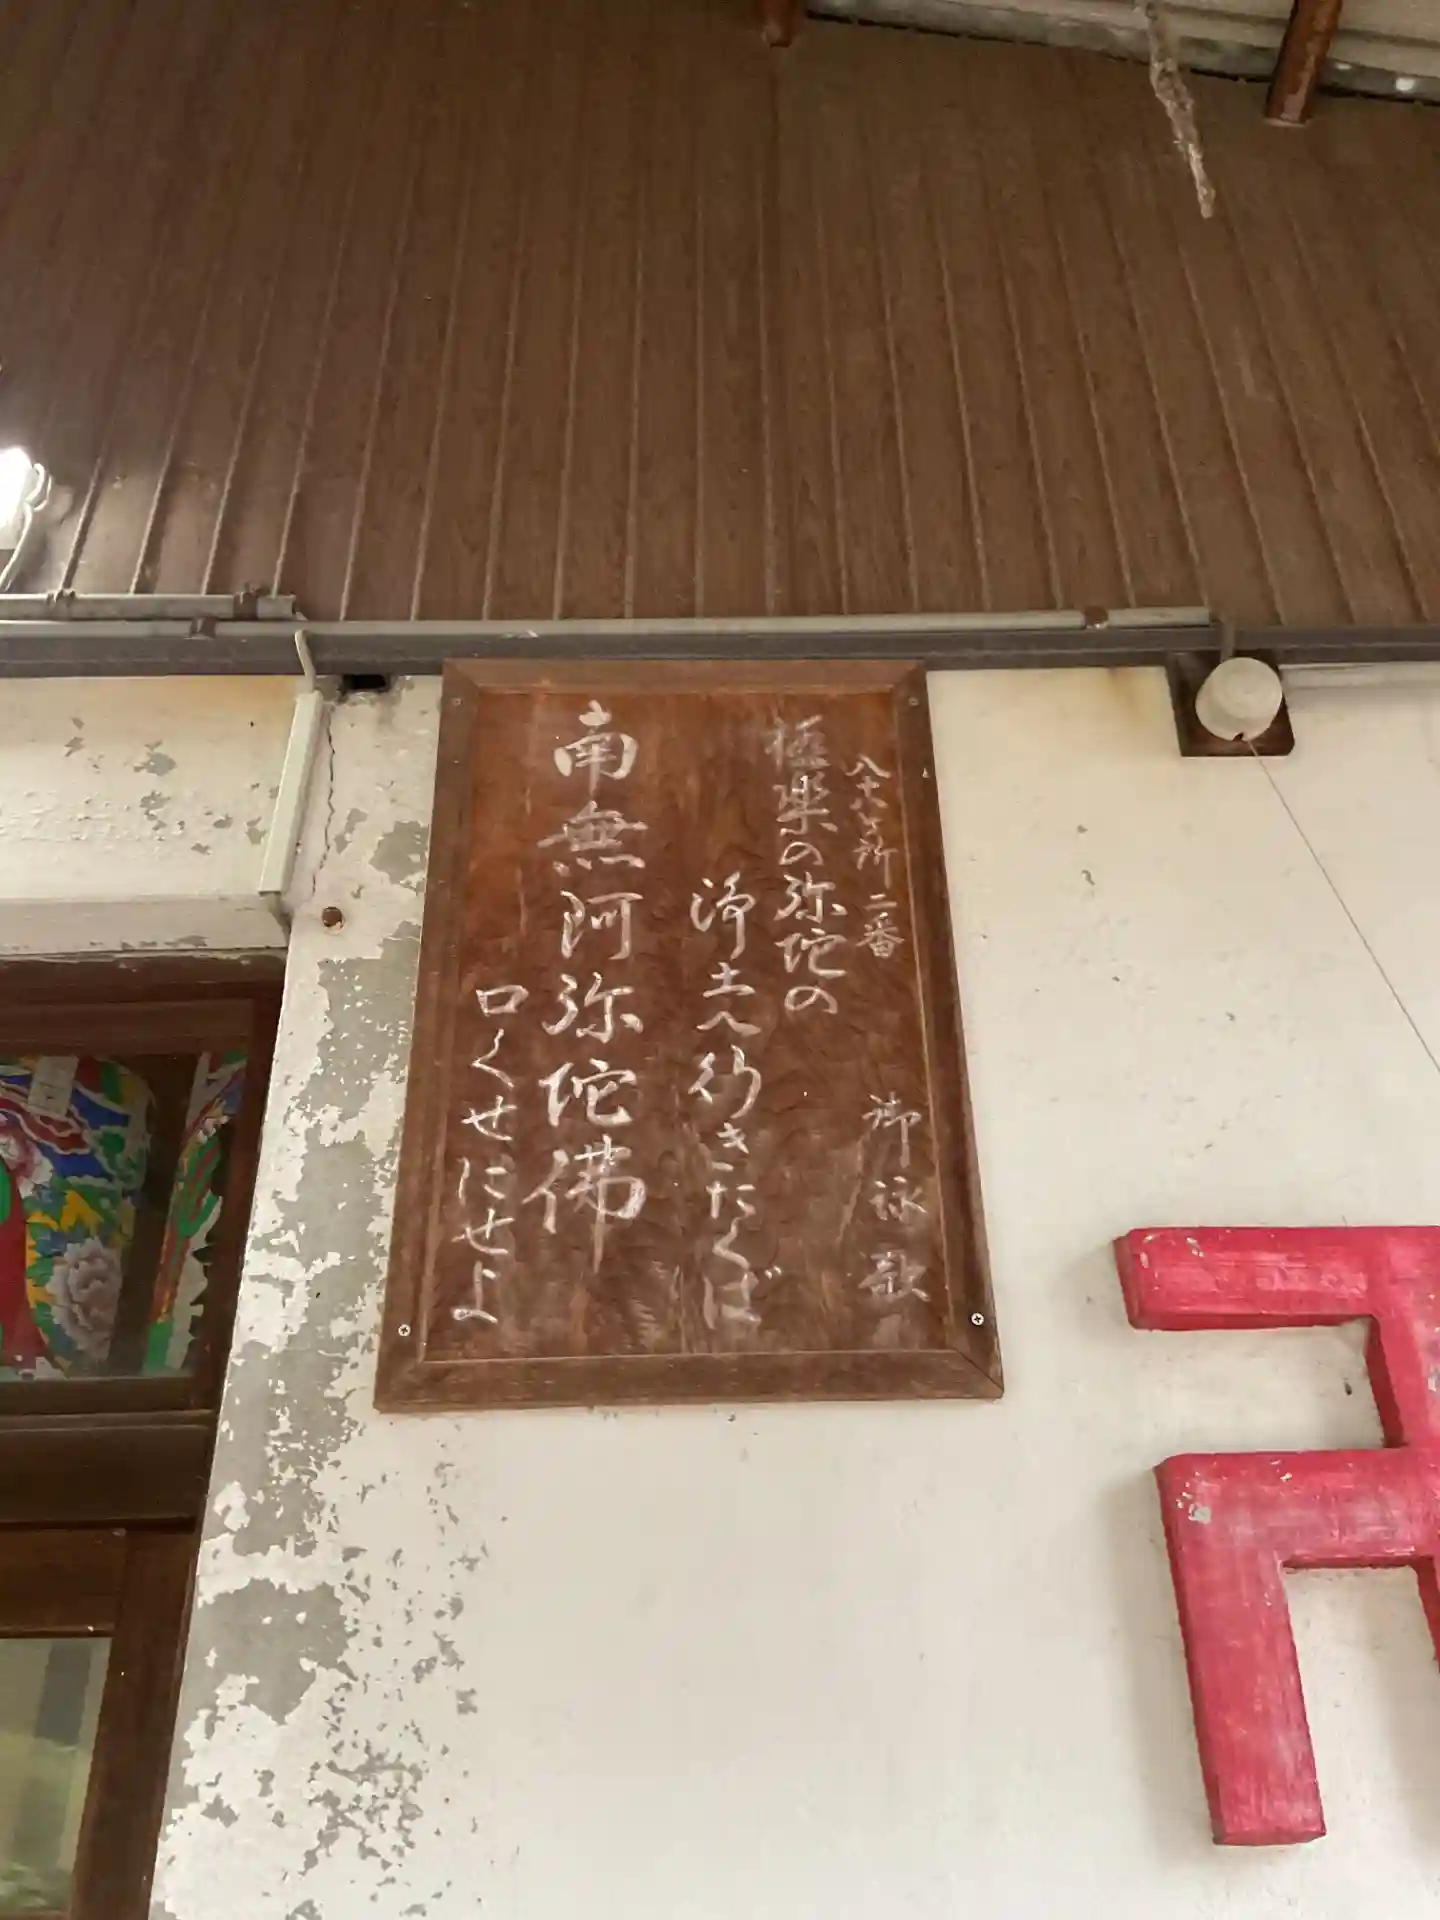 八十八ヶ所二番 御詠歌
極楽の弥陀の
浄土へ行きたくば
南無阿弥陀佛
口くせにせよ